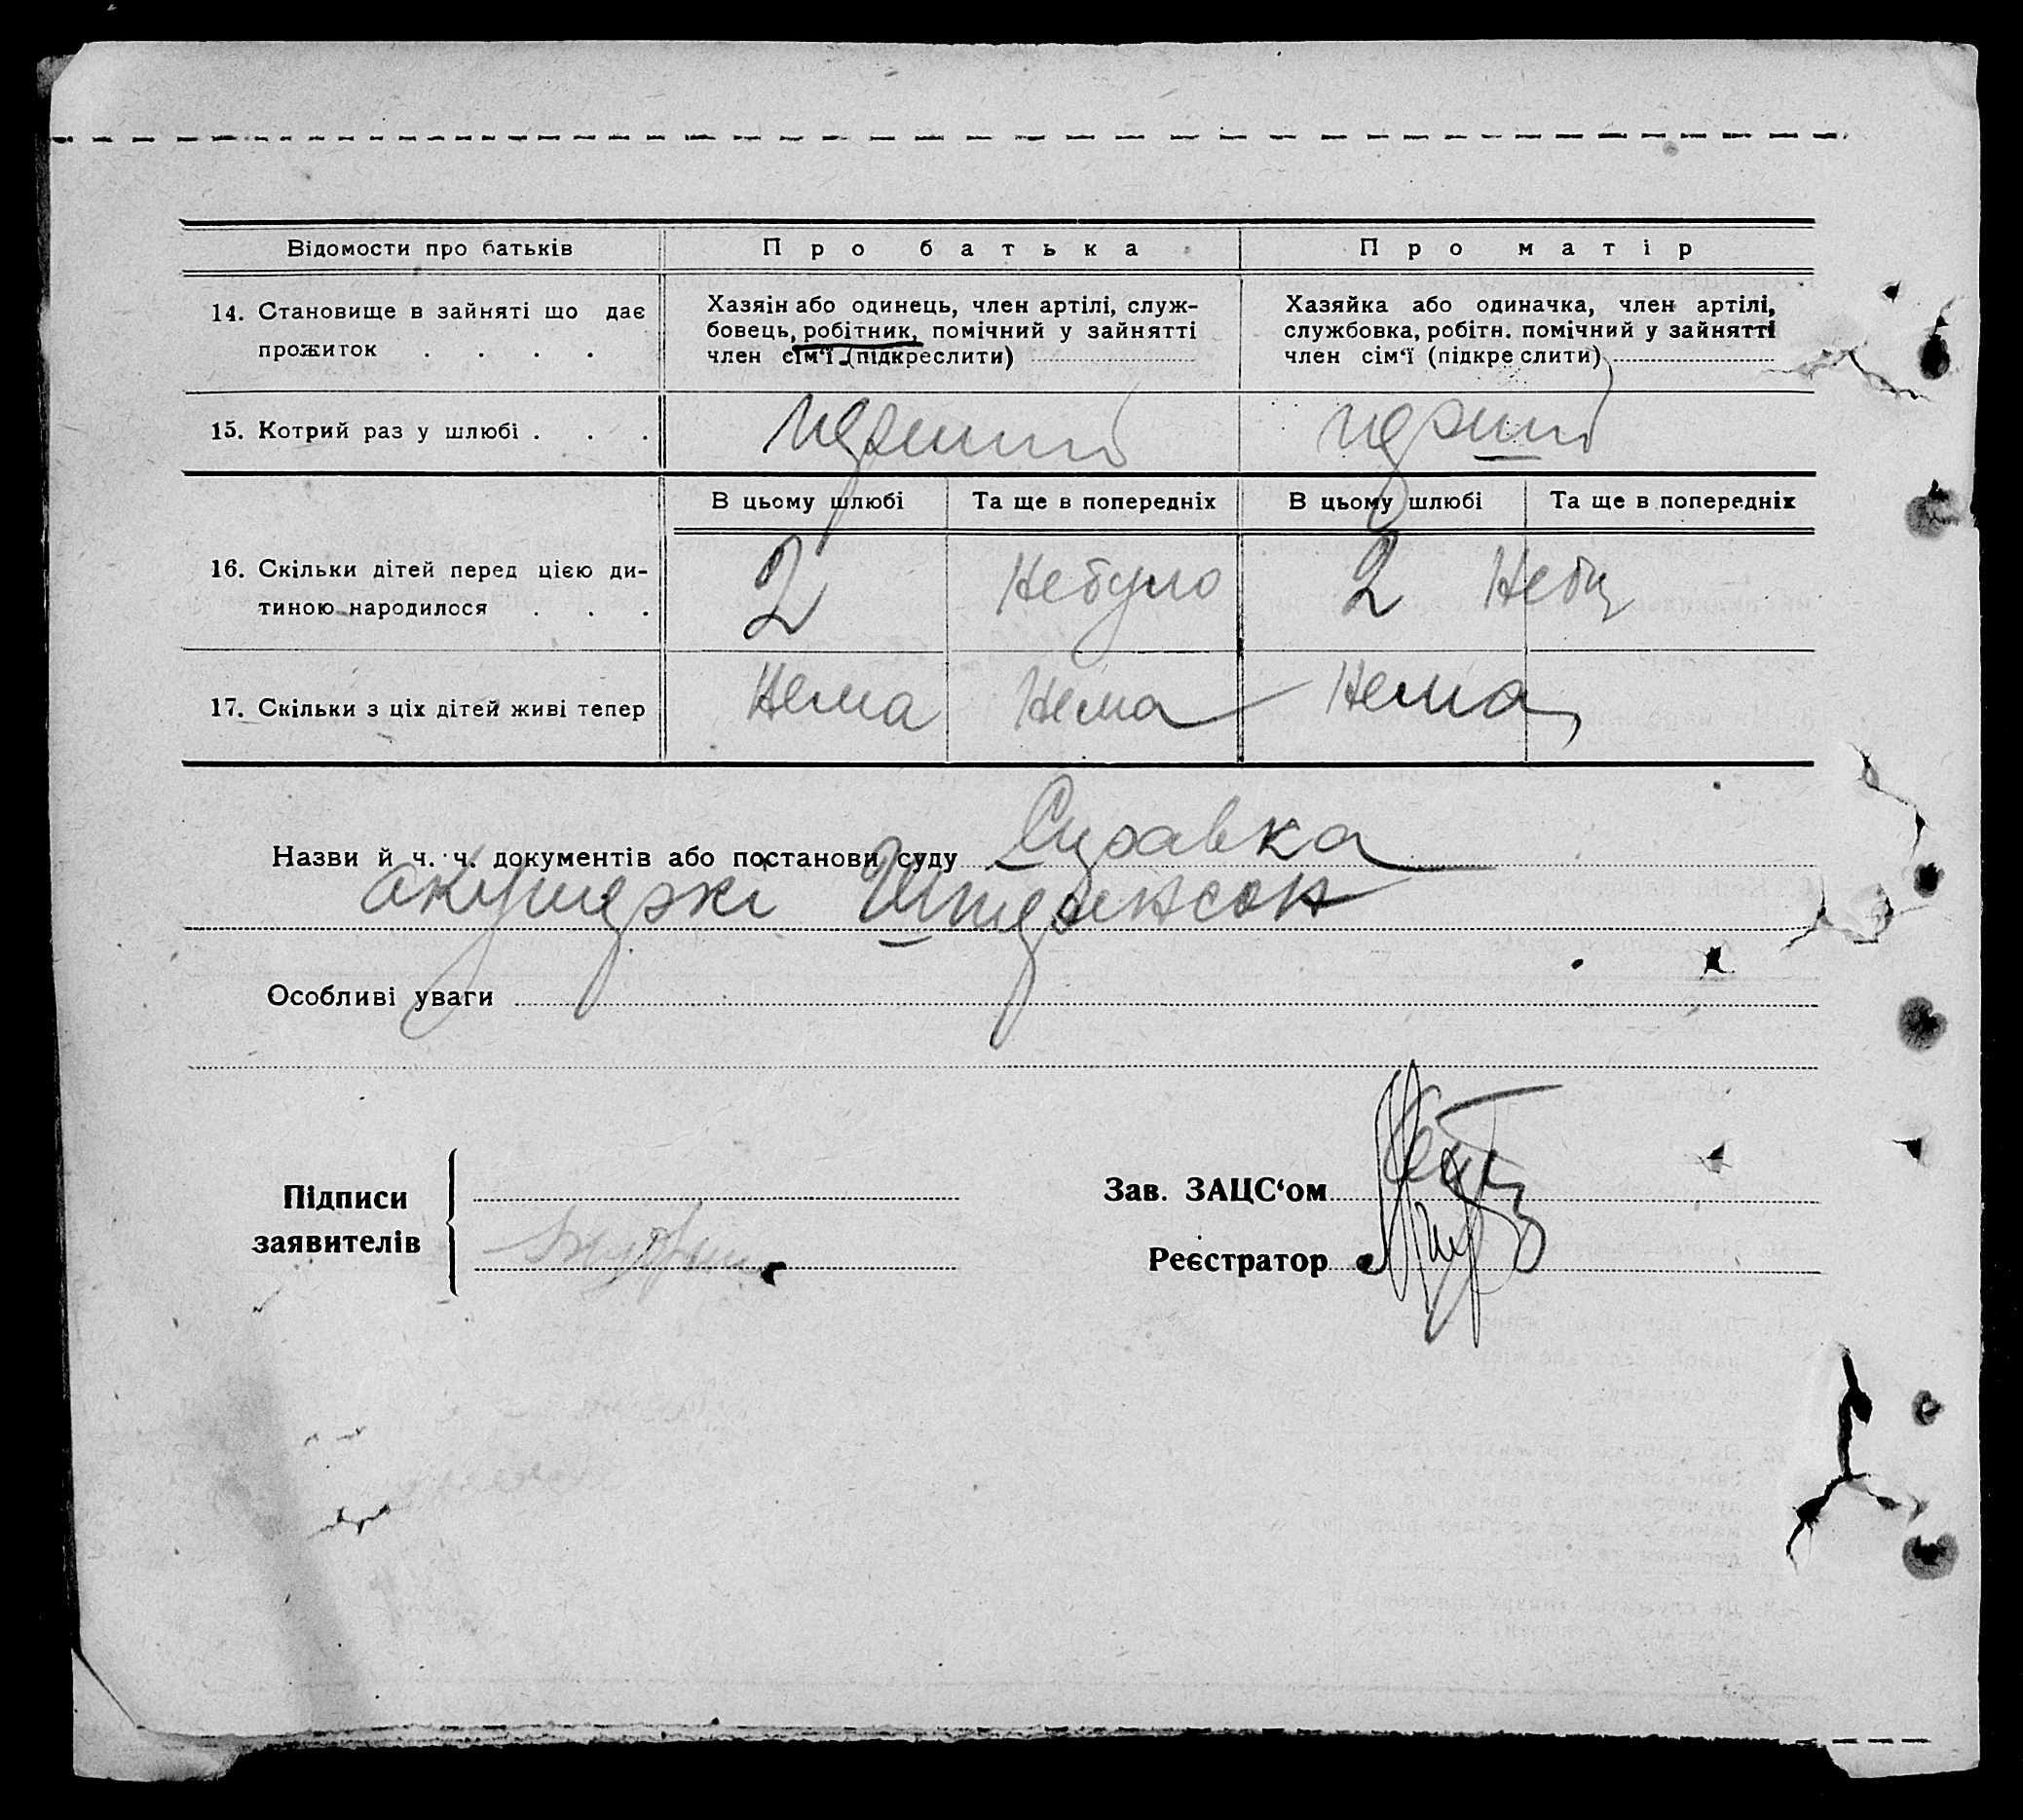 Відомости про батьків
Про батька
Про матір
14. Становище в зайняті що дає
прожиток . . . .
Хазяін або одинець, член артілі, служ-
бовець, робітник, помічний у зайнятті
член сім‘ї (підкреслити)
Хазяйка або одиначка, член артілі,
службовка, робітн. помічний у зайнятті
член сім‘ї (підкреслити)
15. Котрий раз у шлюбі . . .
перший
перший
В цьому шлюбі
Та ще в попередніх
В цьому шлюбі
Та ще в попередніх
16. Скільки дітей перед цією ди-
тиною народилося . . .
2
Небуло
2
17. Скільки з ціх дітей живі тепер
Нема
Нема
Нема
Назви й ч. ч. документів або постанови суду Справка
акушеркі
Особливі уваги
Підписи
заявителів
Зав. ЗАЦС‘ом
Реєстратор